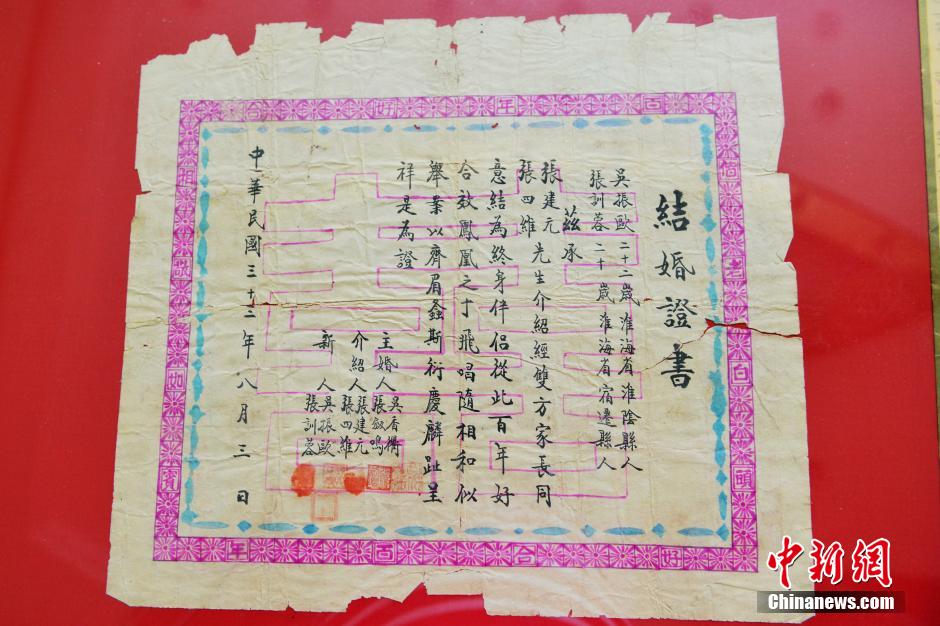 結婚證書
吳振歐二十二歲淮海省淮陰縣人
張訓蓉二十歲淮海省宿遷縣人
茲承
張建元
張四維
先生介紹經雙方家長同
意結為終身伴侶從此百年好
合效鳳凰之于飛唱隨相和似
舉案以齊眉螽斯衍慶麟趾呈
祥是為證
主婚人
吳香衢
張叙鳴
介紹人
張建元
張四維
新人
吳振歐
張訓蓉
中華民國三十三年八月三日
百年好合
偕老白頭
相敬如賓
百年好合
中新網
Chinanews.com